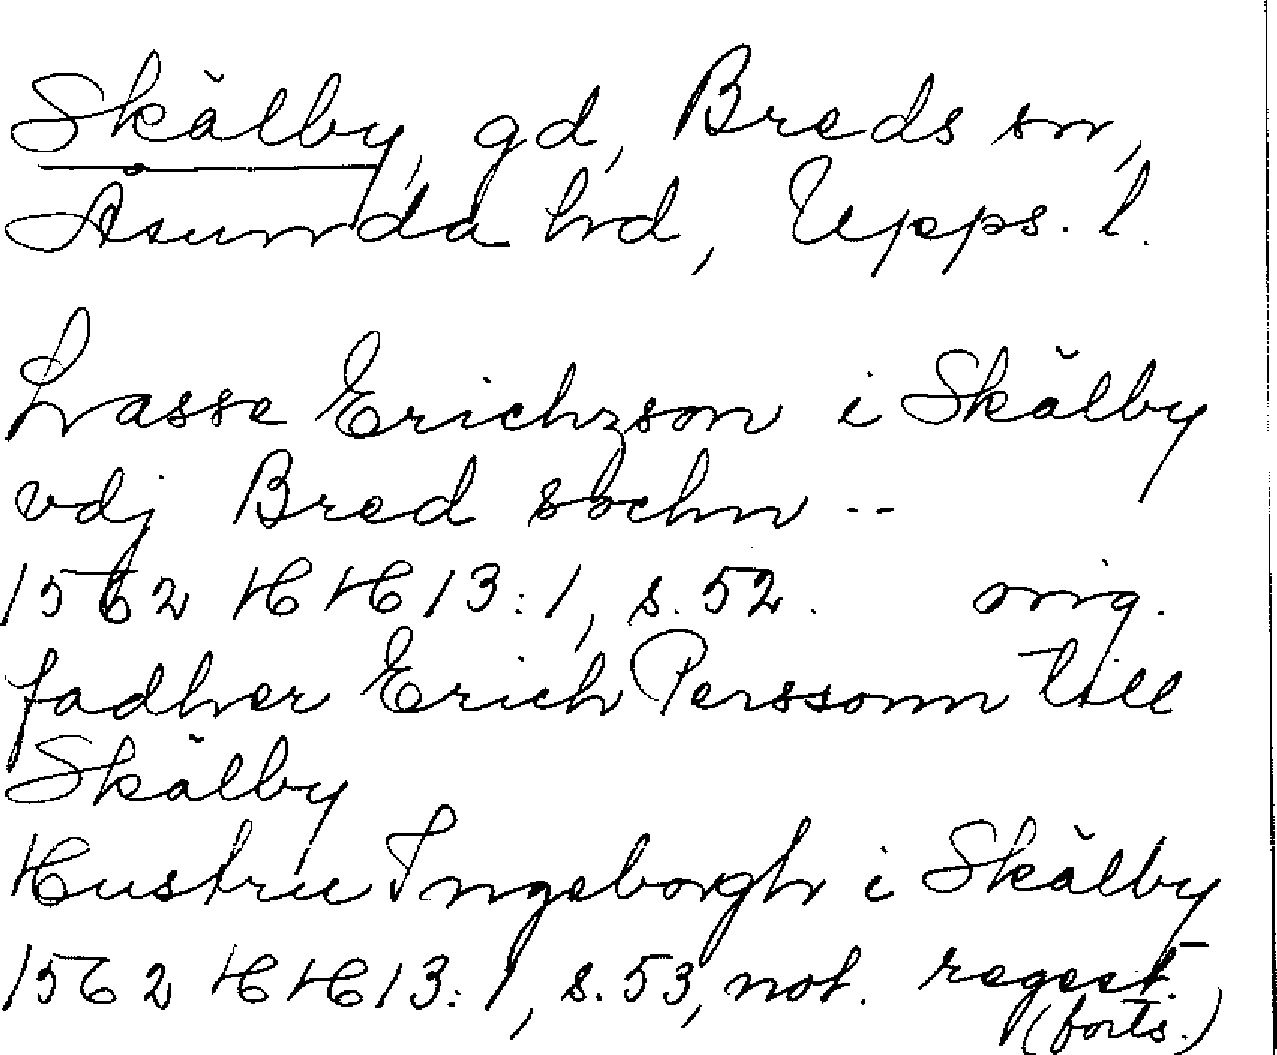 Skälby, gd, Breds sn,
Åsunda hd, Upps. l.
Lasse Erichzson i Skälby
vdj Bred sochn --
1562 HH 13:1, s. 52. orig.
fadher Erich Perssonn till
Skälby
Hustru Ingeborgh i Skälby
1562 HH 13:1, s. 53, not. regest.
(forts.)